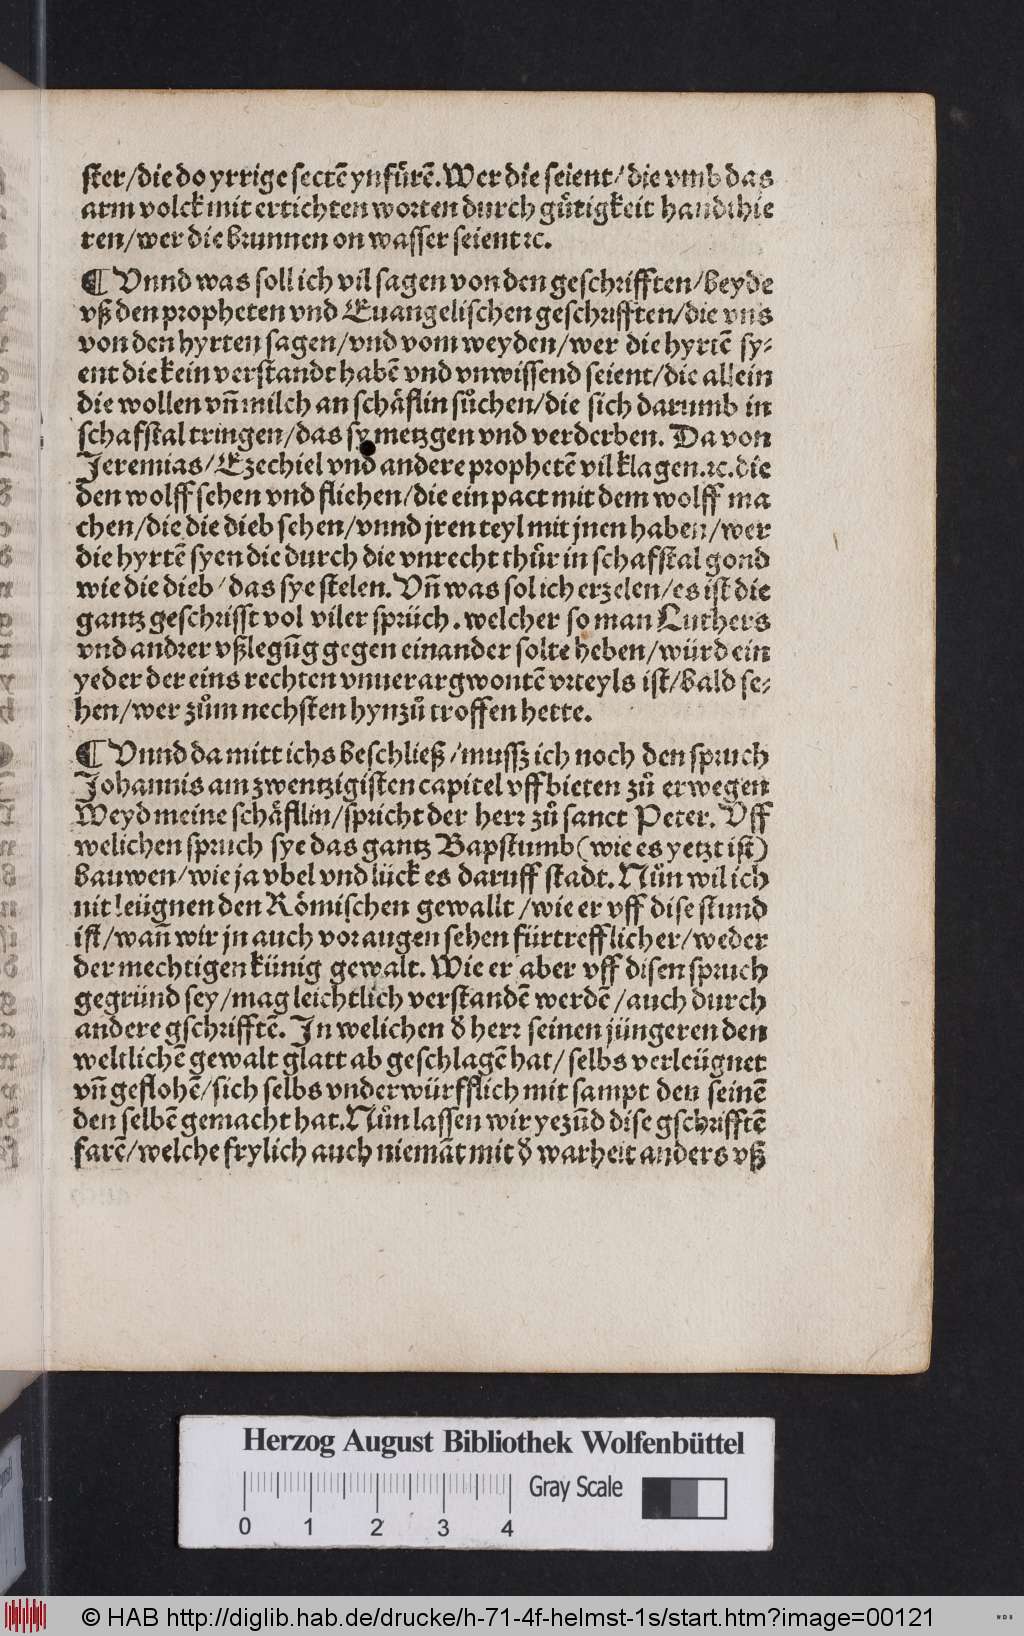 ster/die do yrrige sectē ynfürē. Wer die seient/die vmb das
arm volck mit ertichten worten durch gütigkeit handthie
ren/wer die brunnen on wasser seient ꝛc.
¶ Vnnd was soll ich vil sagen von den geschrifften/beyde
vß den propheten vnd Euangelischen geschrifften/die vns
von den hyrten sagen/vnd vom weyden/wer die hyrtē sy⸗
ent die kein verstandt habē vnd vnwissend seient/die allein
die wollen vñ milch an schäflin sůchen/die sich darumb in
schafstal tringen/das sy metzgen vnd verderben. Da von
Jeremias/Ezechiel vnd andere prophetē vil klagen.ꝛc. die
den wolff sehen vnd fliehen/die ein pact mit dem wolff ma
chen/die die dieb sehen/vnnd jren teyl mit jnen haben/wer
die hyrtē syen die durch die vnrecht thür in schafstal gond
wie die dieb/das sye stelen. Vñ was sol ich erzelen/es ist die
gantz geschrifft vol viler sprüch. welcher so man Luthers
vnd andrer vßlegūg gegen einander solte heben/würd ein
yeder der eins rechten vnuerargwontē vrteyls ist/bald se⸗
hen/wer zům nechsten hynzů troffen hette.
¶ Vnnd da mitt ichs beschließ/mussz ich noch den spruch
Johannis am zwentzigisten capitel vffbieten zů erwegen
Weyd meine schäfllin/spricht der herr zů sanct Peter. Vff
welichen spruch sye das gantz Bapstumb (wie es yetzt ist)
bauwen/wie ja vbel vnd lück es daruff stadt. Nůn wil ich
nit leügnen den Römischen gewallt/wie er vff dise stund
ist/wañ wir jn auch vor augen sehen fürtrefflicher/weder
der mechtigen künig gewalt. Wie er aber vff disen spruch
gegründ sey/mag leichtlich verstandē werdē/auch durch
andere gschrifftē. In welichen ð herr seinen jüngeren den
weltlichē gewalt glatt ab geschlagē hat/selbs verleügnet
vñ geflohē/sich selbs vnderwürfflich mit sampt den seinē
den selbē gemacht hat. Nůn lassen wir yezūd dise gschrifftē
farē/welche frylich auch niemāt mit ð warheit anders vß
Herzog August Bibliothek Wolfenbüttel
Gray Scale
0 1 2 3 4
© HAB http://diglib.hab.de/drucke/h-71-4f-helmst-1s/start.htm?image=00121